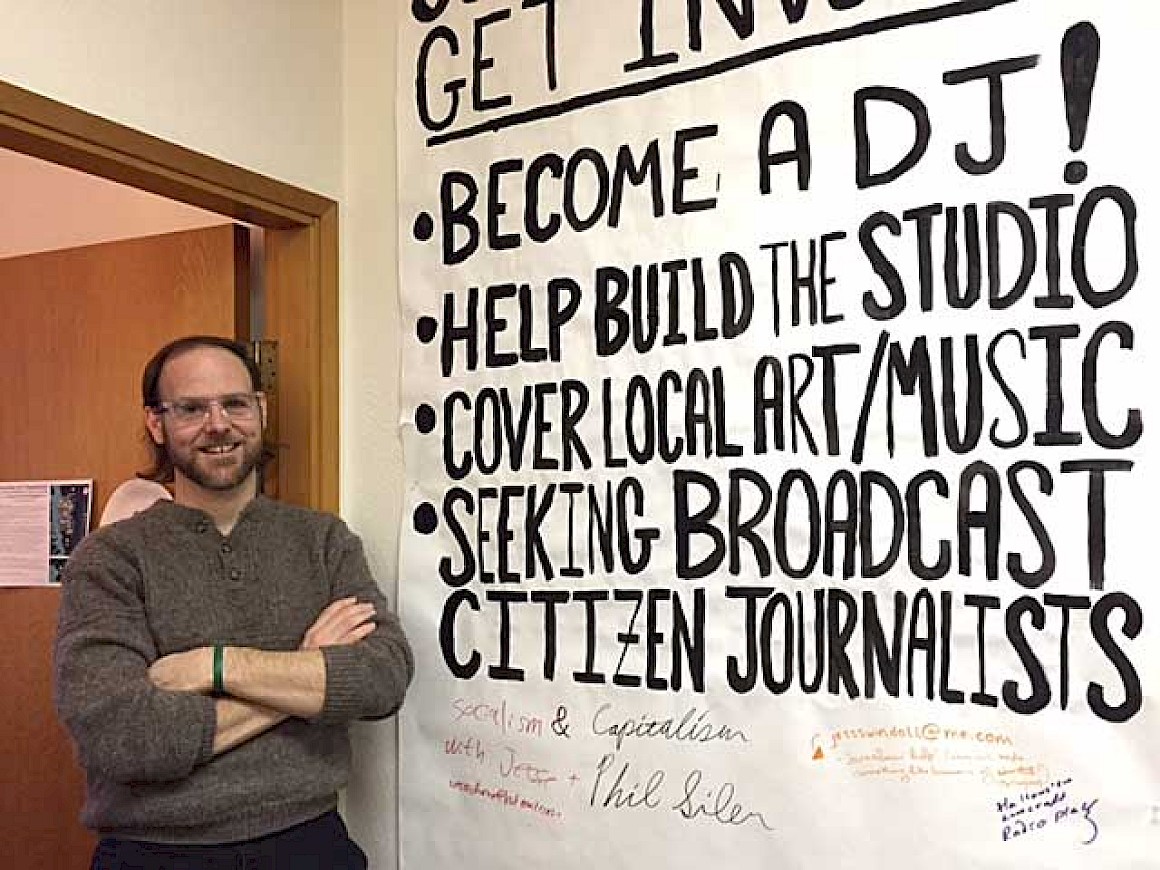 GET INV
• BECOME A DJ!
• HELP BUILD THE STUDIO
• COVER LOCAL ART/MUSIC
• SEEKING BROADCAST
CITIZEN JOURNALISTS
Socialism & Capitalism
with Jesse + Phil Silen
jessswindoll@me.com
Radio Play